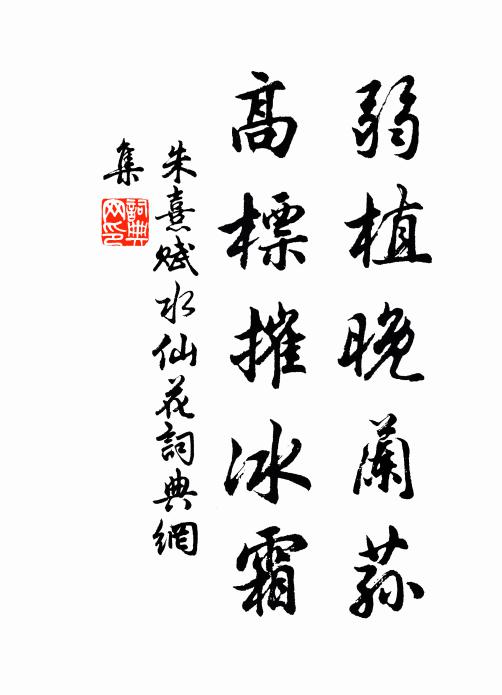 弱植晚蘭蓀
高標摧冰霜
朱熹賦水仙花詞典網
集
詞典網印